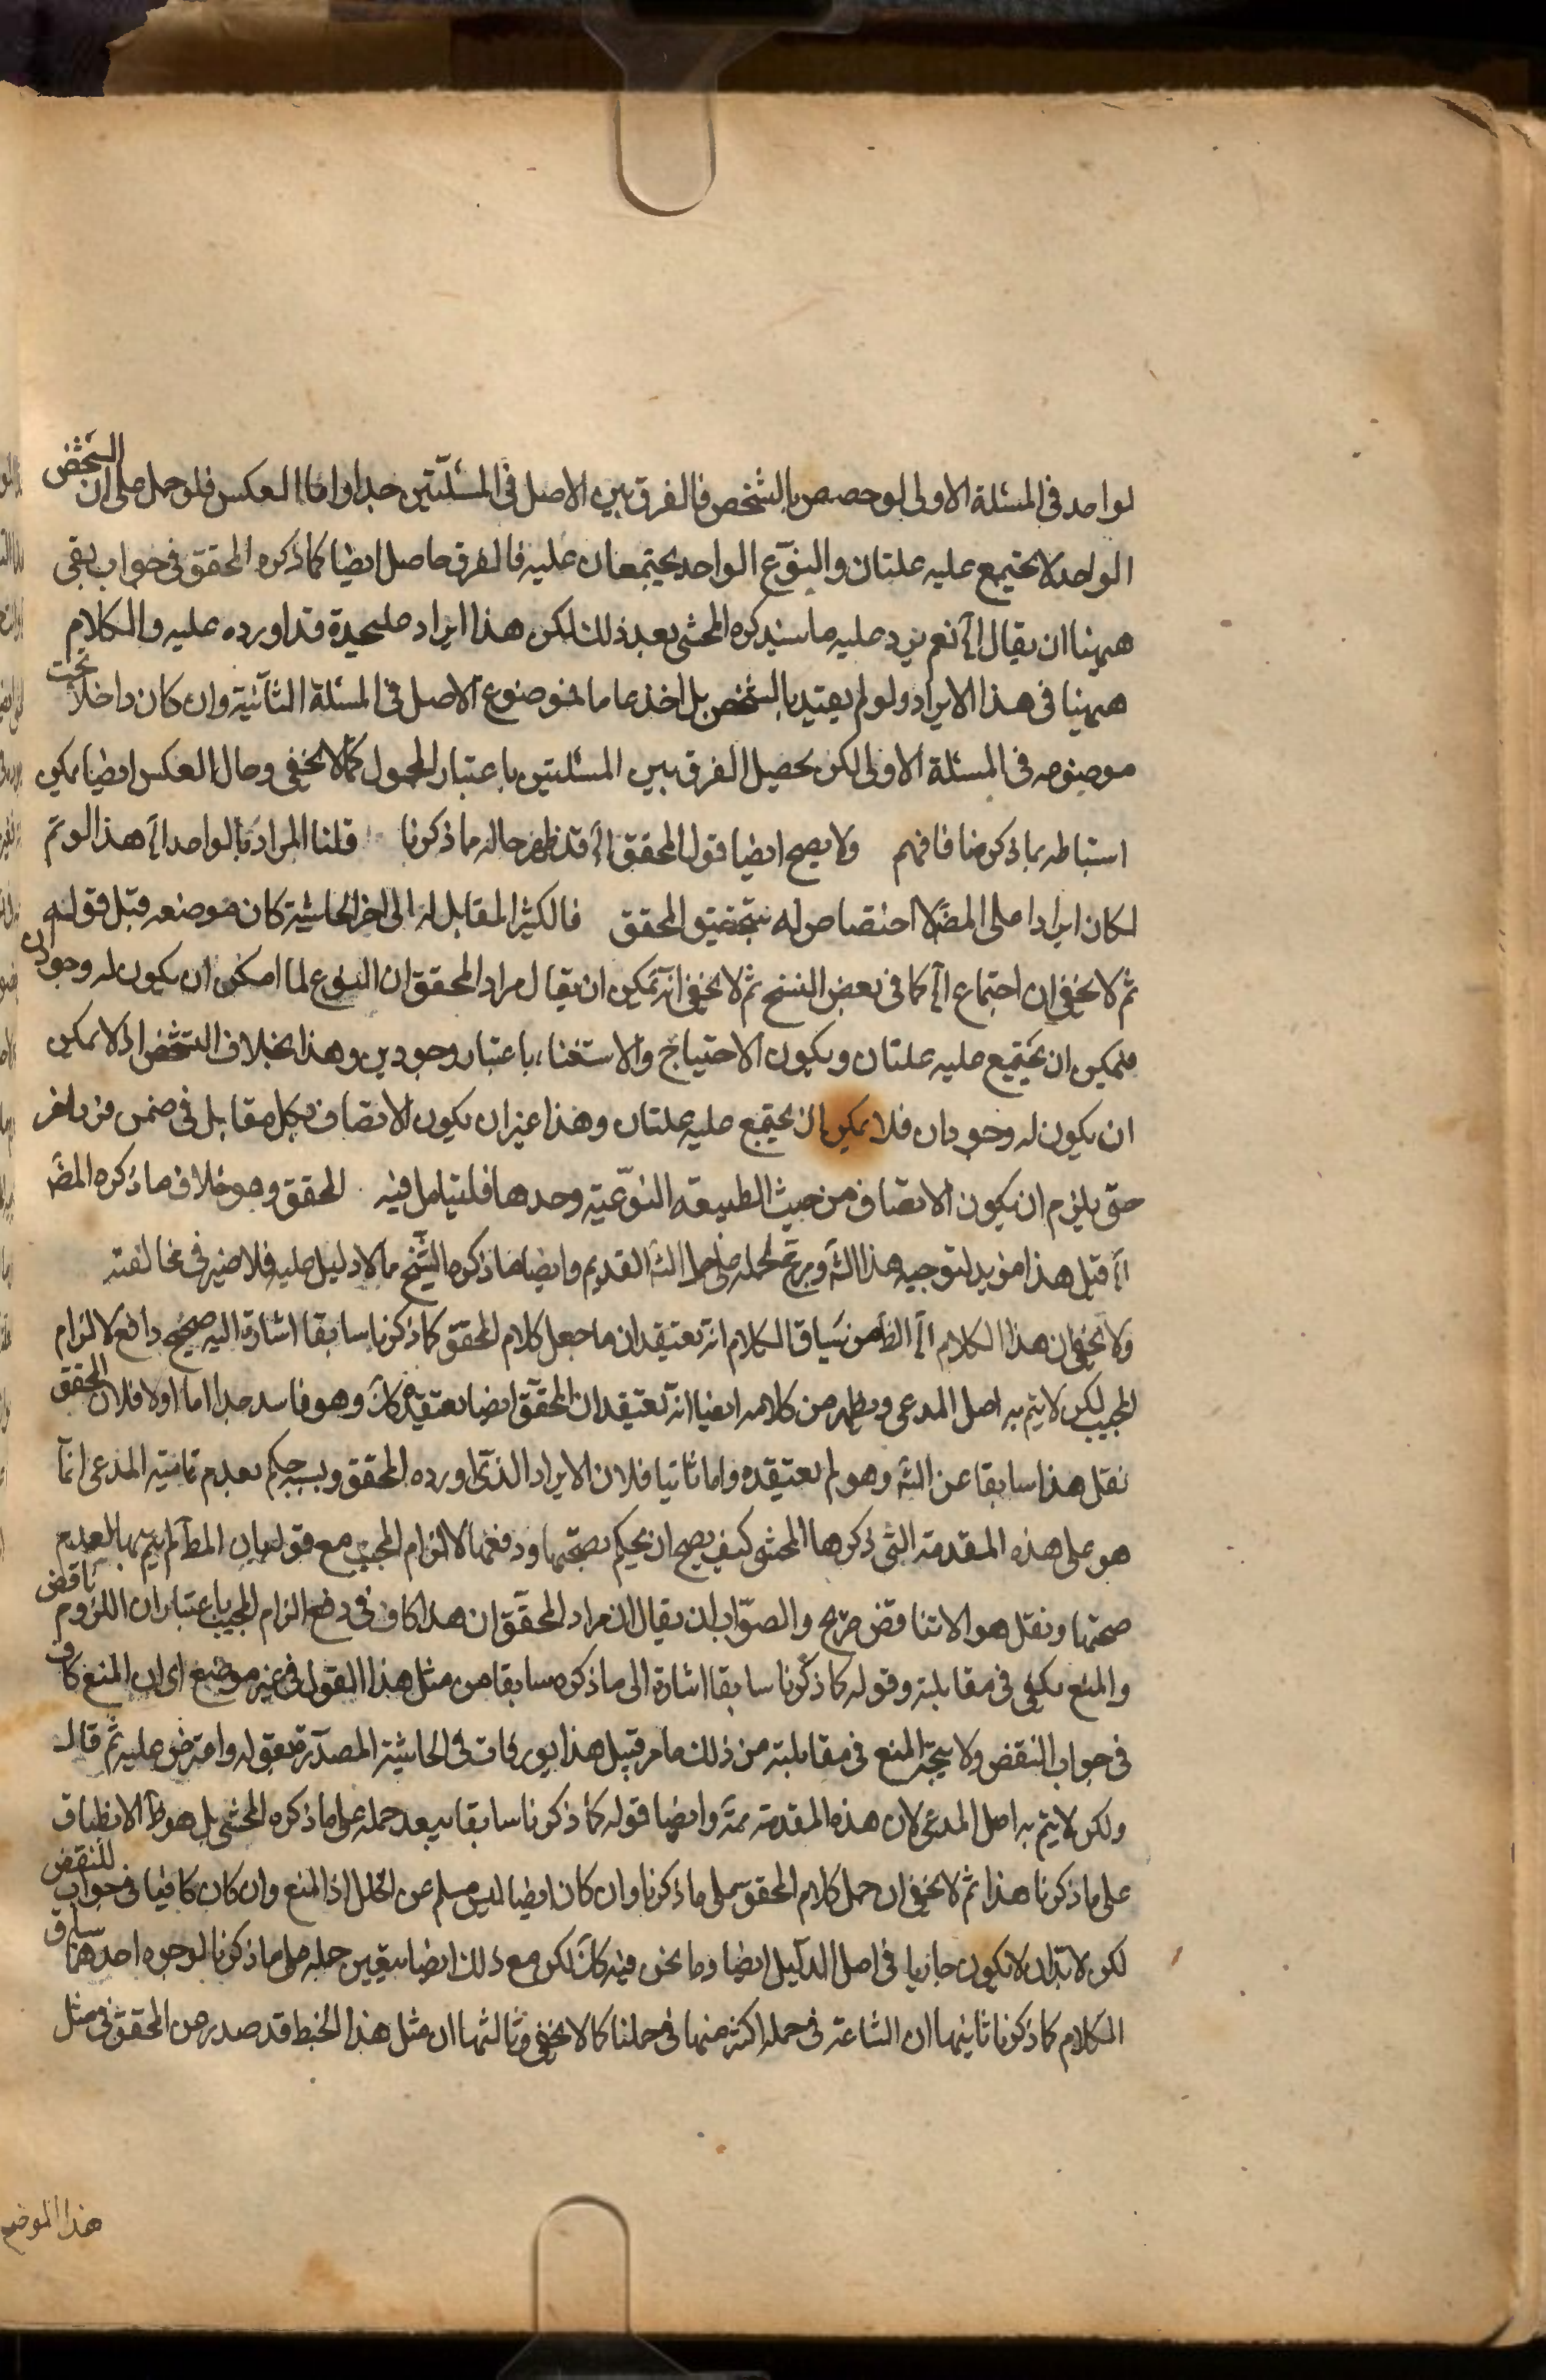 لواحد فى المسئلة الاولى لو خصص بالشخص فالفرق بين الاصل فى المسئلتين جدا واما العكس فلو حمل على ان الشخص
الواحد لا يجتمع عليه علتان والنوع الواحد يجتمعان عليه فالفرق حاصل ايضا كما ذكره المحقق فى جواب بقى
ههنا ان يقال الخ نعم يرد عليه ما سيذكره المحشى بعد ذلك لكن هذا ايراد عليحدة قد اورده عليه والكلام
ههنا فى هذا الايراد ولو لم يقيد بالشخص بل اخذ عاما فموضوع الاصل فى المسئلة الثانية وان كان داخلا تحت
موضوعه فى المسئلة الاولى لكن يحصل الفرق بين المسئلتين باعتبار المحمول كما لا يخفى وحال العكس ايضا يمكن
استنباطه بما ذكرنا فافهم ولا يصح ايضا قول المحقق الخ قد ظهر حاله مما ذكرنا قلنا المراد بالواحد الخ هذا لو تم
لكان ايرادا على المص لا اختصاص له بتحقيق المحقق فالكثير المقابل له الى اخر الحاشية كان موضعه قبل قوله
ثم لا يخفى ان اجتماع الخ كما فى بعض النسخ ثم لا يخفى انه يمكن ان يقال مراد المحقق ان النوع لما امكن ان يكون له وجودان
فيمكن ان يجتمع عليه علتان ويكون الاحتياج والاستغناء باعتبار وجودين وهذا بخلاف الشخص اذ لا يمكن
ان يكون له وجودان فلا يمكن ان يجتمع عليه علتان وهذا غير ان يكون الاتصاف بكل مقابل فى ضمن فرد اخر
حتى يلزم ان يكون الاتصاف من حيث الطبيعة النوعية وحدها فليتامل فيه المحقق وهو خلاف ما ذكره المص
الخ قيل هذا مؤيد لتوجيه هذا الش القديم وايضا ما ذكره الشيخ مما لا دليل عليه فلا ضير فى مخالفته
ولا يخفى ان هذا الكلام الخ الظ من سياق الكلام انه يعتقد ان ما جعل كلام المحقق كما ذكرنا سابقا اشارة اليه صحيح دافع لالزام
المجيب لكن لا يتم به اصل المدعى ويظهر من كلامه ايضا انه يعتقد ان المحقق ايضا يعتقده كك وهو فاسد جدا اما اولا فلان المحقق
نقل هذا سابقا عن الش وهو لم يعتقده واما ثانيا فلان الايراد الذى اورده المحقق وبسببه حكم بعدم تمامية المدعى انما
هو على هذه المقدمة التى ذكرها المحشى كيف يصح ان يحكم بصحتها ودفعها لالزام المجيب مع قوله بان المط لم يتم بها لعدم
صحتها ونقل هو الا تناقض صريح والصواب ان يقال ان مراد المحقق ان هذا كاف فى دفع الزام المجيب باعتبار ان اللزوم ناقض
والمنع يكفى فى مقابلته وقوله كما ذكرنا سابقا اشارة الى ما ذكره سابقا من مثل هذا القول فى غير موضع اى ان المنع كاف
فى جواب النقض ولا يتجه المنع فى مقابلته من ذلك ما مر قبيل هذا بورقات فى الحاشية المصدرة بقوله واعترض عليه ثم قال
ولكن لا يتم به اصل المدعى لان هذه المقدمة ممة وايضا قوله كما ذكرنا سابقا يبعد حمله على ما ذكره المحشى بل هو ظ الانطباق
على ما ذكرنا هذا ثم لا يخفى ان حمل كلام المحقق على ما ذكرنا وان كان ايضا ليس يسلم عن الخلل اذ المنع وان كان كافيا فى جواب النقض
لكن لا بد ان لا يكون جاريا فى اصل الدليل ايضا وما نحن فيه كك لكن مع ذلك ايضا يتعين حمله على ما ذكرنا لوجوه احدها سياق
الكلام كما ذكرنا ثانيها ان الشناعة فى حمله اكثر منها فى حملنا كما لا يخفى وثالثها ان مثل هذا الخبط قد صدر من المحقق فى مثل
هذا الموضع